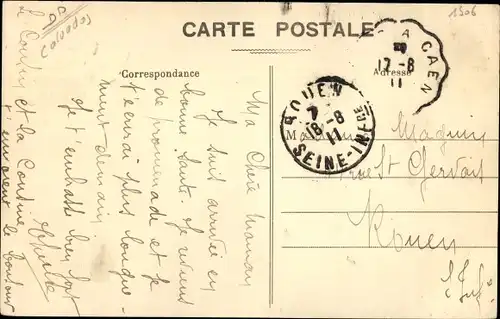 CARTE POSTALE
1506
Calvados
Correspondance
Adresse
A CAEN
17-8
11
ROUEN
7
18-8
11
SEINE-INFRE
Ma Chère Maman
Je suis arrivée en
bonne santé. Je reviens
de promenade et je
t'écrirai plus longue-
ment demain
Je t'embrasse bien fort
Le Cousin et la Cousine
t'envoient le bonjour
Madame Maguin
rue St Gervais
Rouen